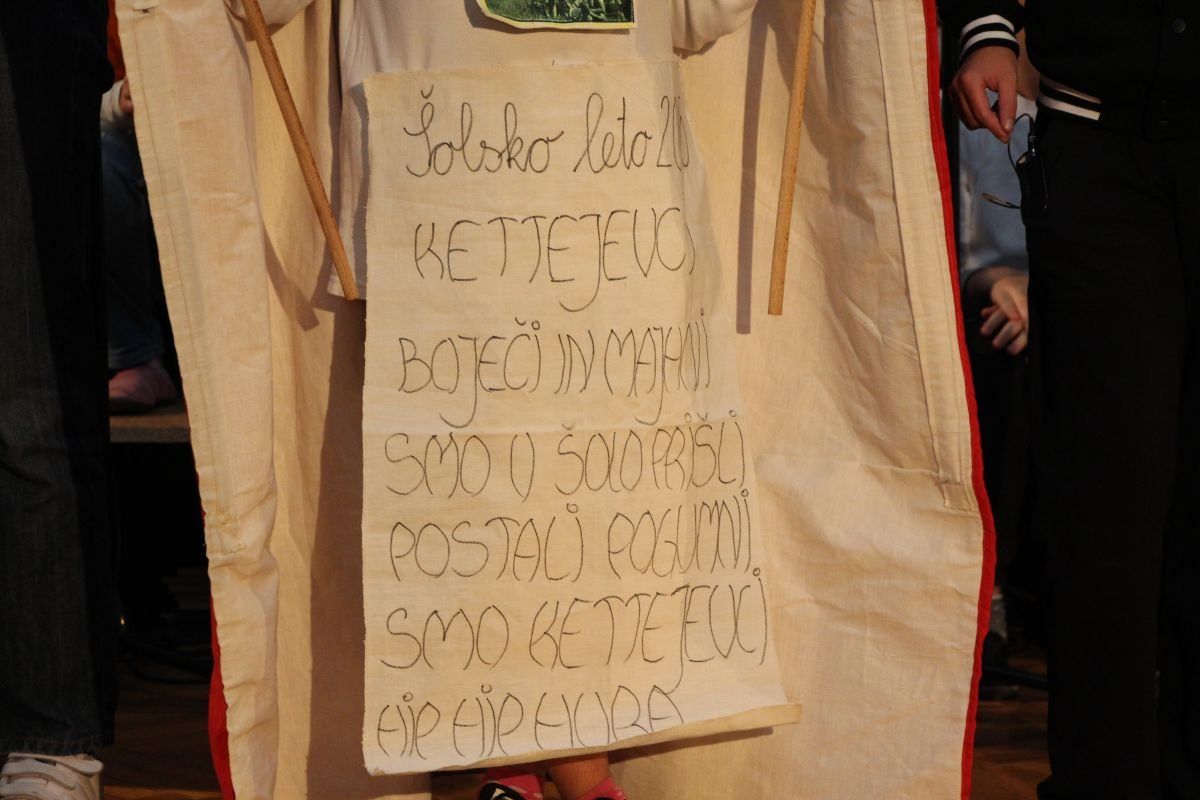 Šolsko leto
KETTEJEVCI
BOJEČI IN MAJHNI
SMO V ŠOLO PRIŠLI
POSTALI POGUMNI
SMO KETTEJEVCI
HIP HIP HURA